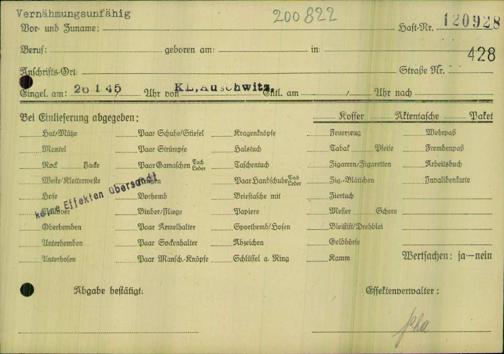 Vernähmungsunfähig 200822
Vor- und Zuname: Haft-Nr. 120928
Beruf: geboren am: in 428
Anschrifts-Ort Straße Nr.
Eingel. am: 26 1 45 Uhr von KL. Auschwitz, Entl. am Uhr nach
Bei Einlieferung abgegeben: Koffer Aktentasche Paket
Hut/Mütze Paar Schuhe/Stiefel Kragenknöpfe Feuerzeug Wehrpaß
Mantel Paar Strümpfe Halstuch Tabak Pfeife Fremdenpaß
Rock Jacke Paar Gamaschen Tuch Leder Taschentuch Zigarren/Zigaretten Arbeitsbuch
Weste/Kletterweste Paar Handschuhe Tuch Leder Zig.-Blättchen Invalidenkarte
Hose Vorhemd Brieftasche mit Ziertuch
keine Effekten übersandt
Pullover Binder/Fliege Papiere Messer Schere
Oberhemden Paar Ärmelhalter Sporthemd/Hosen Bleistift/Drehblei
Unterhemden Paar Sockenhalter Abzeichen Geldbörse
Unterhosen Paar Mansch.-Knöpfe Schlüssel a. Ring Kamm Wertsachen: ja—nein
Abgabe bestätigt: Effektenverwalter: